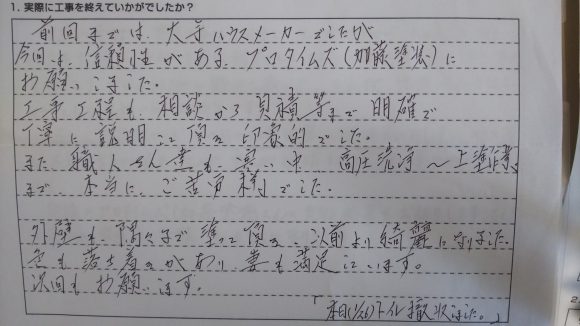 1. 実際に工事を終えていかがでしたか?
前回までは、大手ハウスメーカーでしたが
今回は、信頼性がある、プロタイムズ(加藤塗装)に
お願いしました。
工事工程も、相談から見積等まで明確で
丁寧に説明して頂き印象的でした。
また職人さん達も、暑い中、高圧洗浄〜上塗
まで、本当に、ご苦労様でした。
外壁も、隅々まで塗って頂き、以前より綺麗になりました。
色も落ち着きがあり、妻も満足しています。
次回もお願いします。
トイレ撤収しました。」